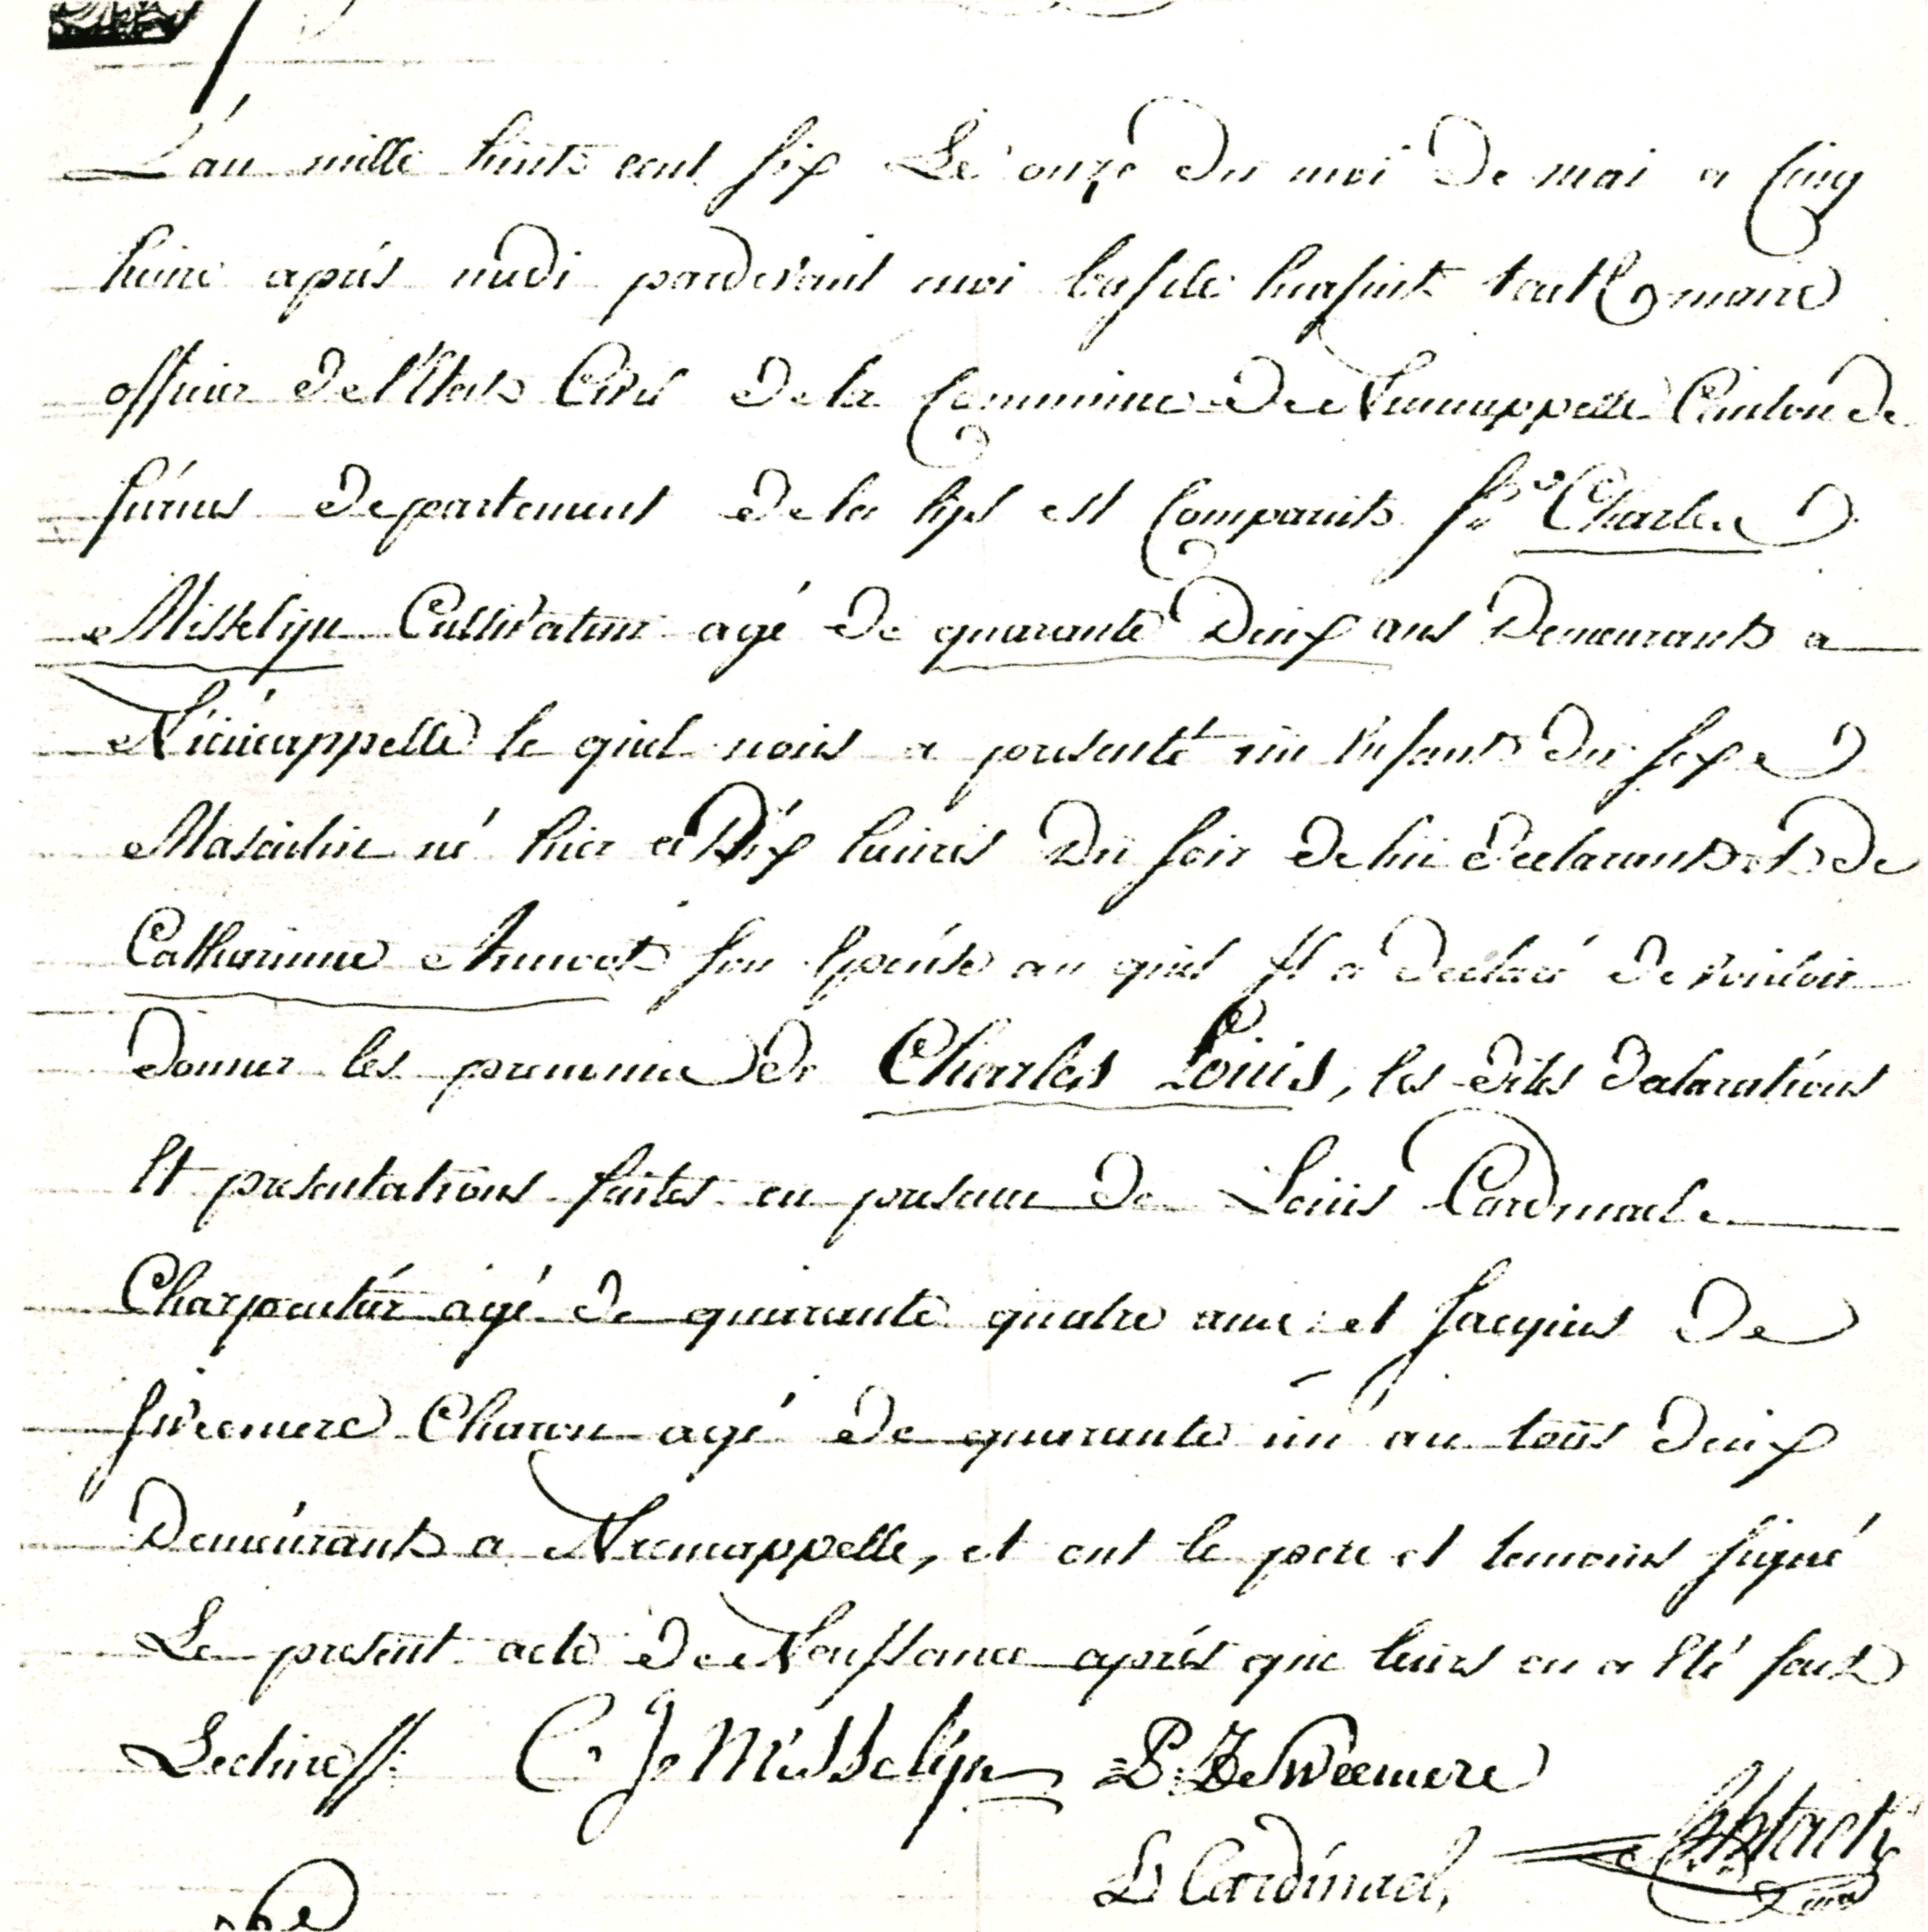 L'an mille huits cent six Le onze du moi de mai a cinq
heure aprés midi pardevant moi maire
officier de l'Etats Civil de la Commune de Nieucappelle Canton de
furnes departement de la lijs est Comparuits Charles
Misselijn Cultivateur agé de quarante Deux ans Demeurants a
Nieucappelle le quel nous a presenté un Enfants du sexe
Masculin né hier a Dix heures Du soir de lui declarants et de
Catharinne son Epouse au quel Il a declaré de vouloir
donner les prenomie de Charles Louis, les dites declarations
Et presentations faites en presence de Louis Cardinael
Charpentier agé de quarante quatre ans et Jacques De
Sweemere Charon agé de quarante un an tous deux
Demeurants a Nieucappelle, et ont le pere et temoins signé
Le present acte de Naissance aprés que leurs en a Eté fait
Lecture//. C J Misselijn P. J. DeSweemere
L Cardinael